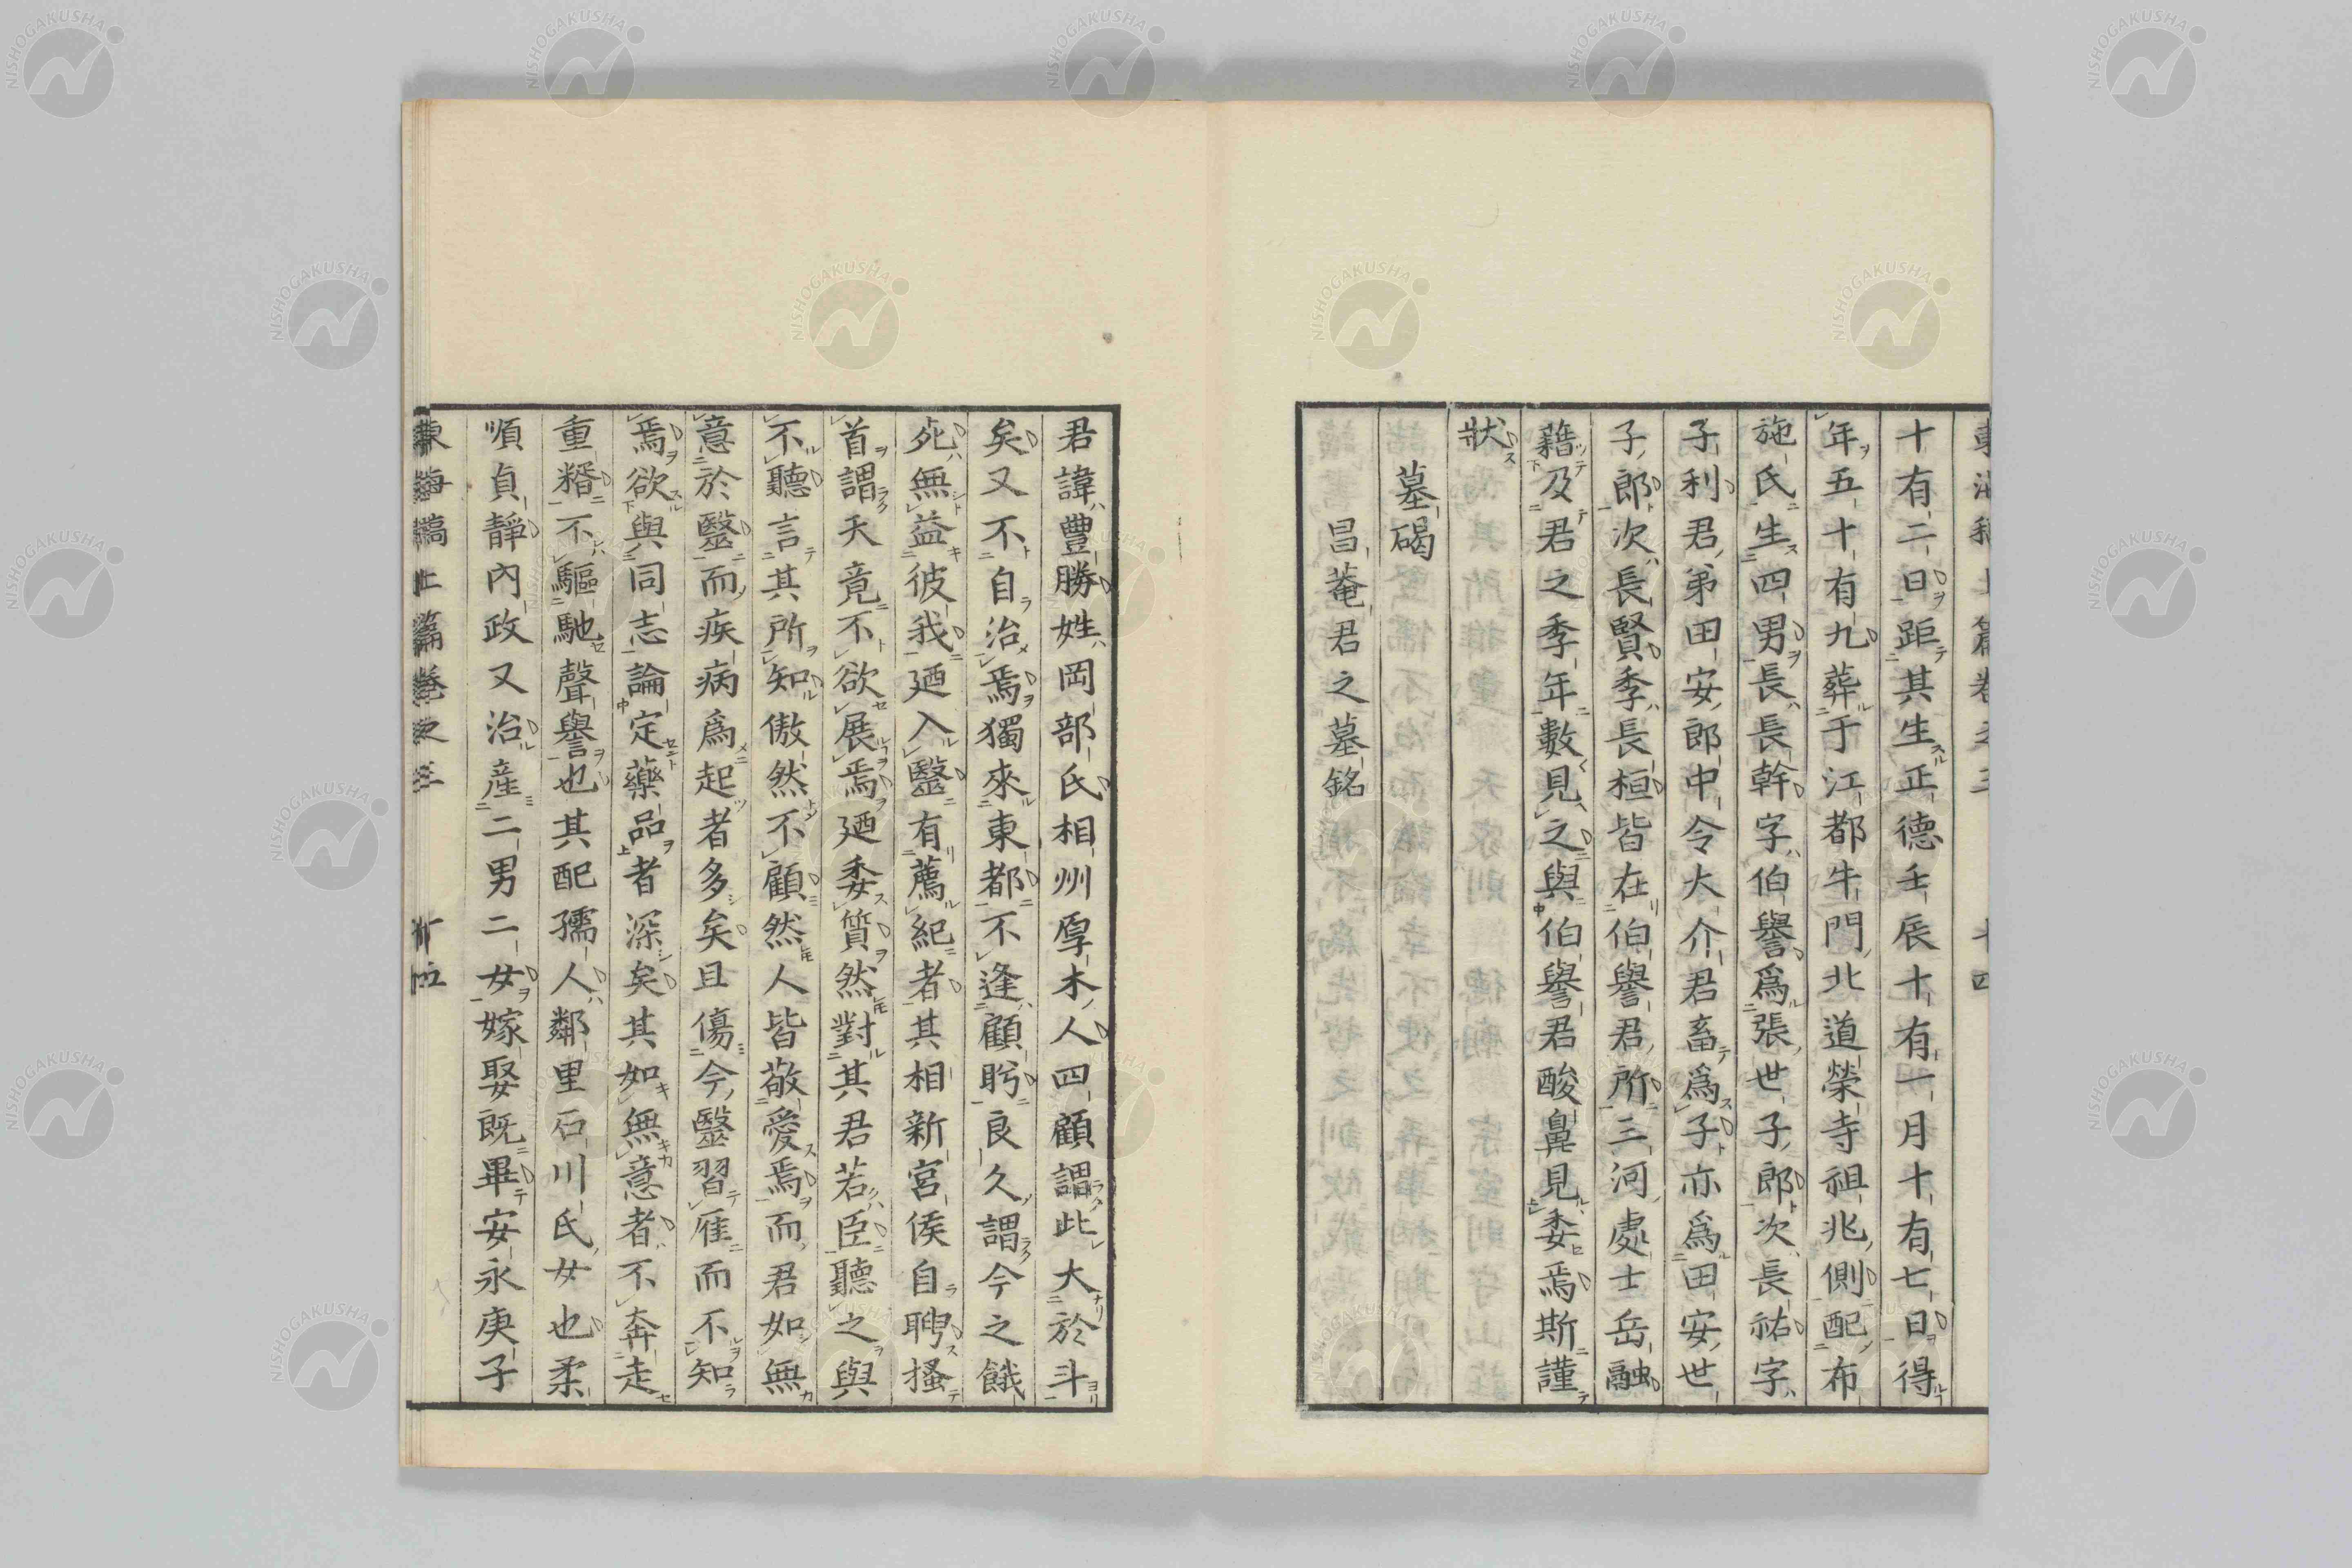 東海稿上篇卷之三 十四
十有二日距其生正德壬辰十有一月十有七日得
年五十有九葬于江都牛門北道榮寺祖兆側配布
施氏生四男長長幹字伯譽爲張世子郎次長祐字
子利君弟田安郎中令大介君畜爲子亦爲田安世
子郎次長賢季長桓皆在伯譽君所三河處士岳融
藉及君之季年數見之與伯譽君酸鼻見委焉斯謹
狀
墓碣
昌菴君之墓銘
君諱豐勝姓岡部氏相州厚木人四顧謂此大於斗
矣又不自治焉獨來東都不逢顧眄良久謂今之餓
死無益彼我廼入醫有薦紀者其相新宮侯自聘搔
首謂天竟不欲展焉廼委質然對其君若臣聽之與
不聽言其所知傲然不顧然人皆敬愛焉而君如無
意於醫而疾病爲起者多矣且傷今醫習雁而不知
焉欲與同志論定藥品者深矣其如無意者不奔走
重糈不驅馳聲譽也其配孺人鄰里石川氏女也柔
順貞靜內政又治產二男二女嫁娶既畢安永庚子
東海稿上篇卷之三 十五
NISHOGAKUSHA